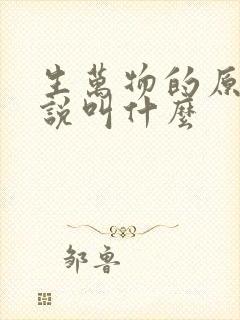 生萬物的原
說叫什麼
鄒魯